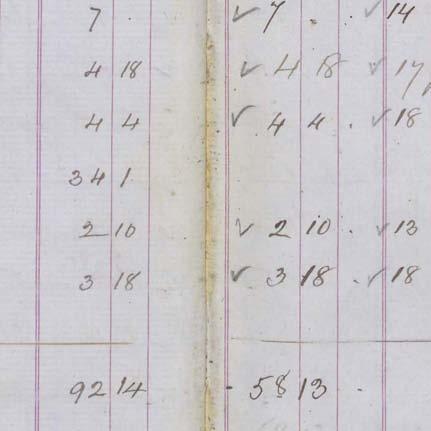 7 . ✓ 7 . . ✓ 14
4 18 ✓ 4 18 ✓ 17
4 4 ✓ 4 4 . ✓ 18
34 1
2 10 ✓ 2 10 . ✓ 13
3 18 ✓ 3 18 . ✓ 18
92 14 - 58 13 .